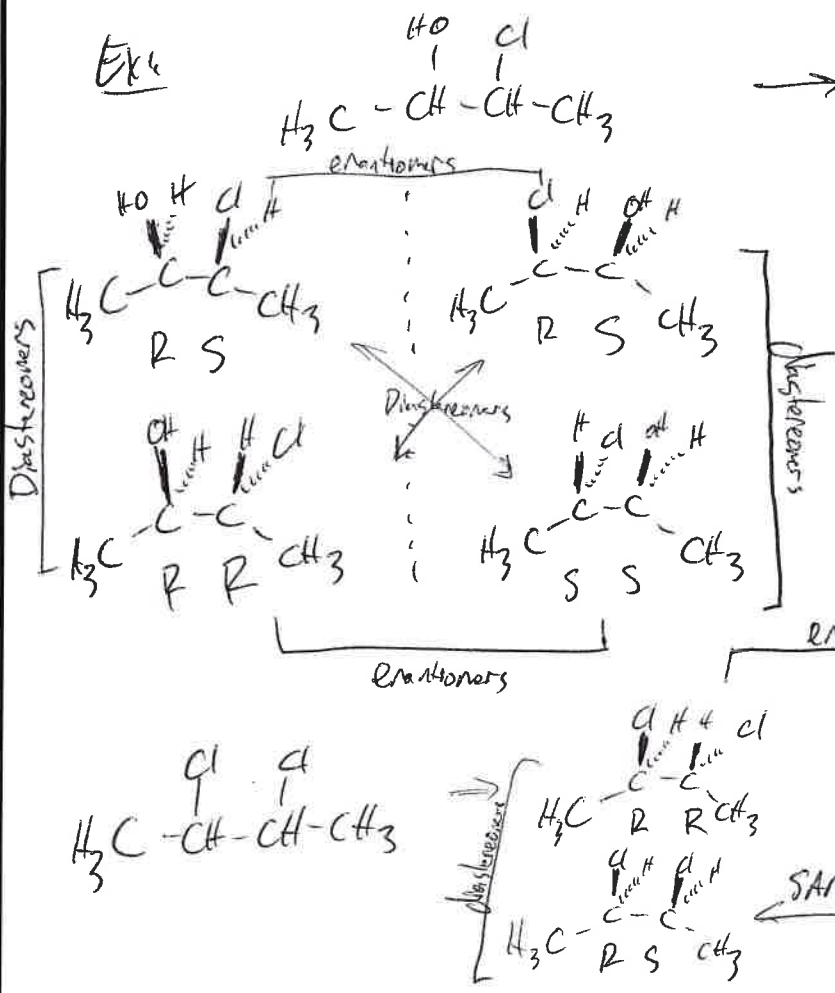 Ex:
HO Cl
H3C - CH - CH - CH3
enantiomers
HO H Cl H
H3C - C - C - CH3
R S
Cl H OH H
H3C - C - C - CH3
R S
Diastereomers
Diastereomers
diastereomers
OH H H Cl
H3C - C - C - CH3
R R
H Cl OH H
H3C - C - C - CH3
S S
enantiomers
en
Cl Cl
H3C - CH - CH - CH3
diastereomers
Cl H H Cl
H3C - C - C - CH3
R R
Cl H Cl H
H3C - C - C - CH3
R S
SAM